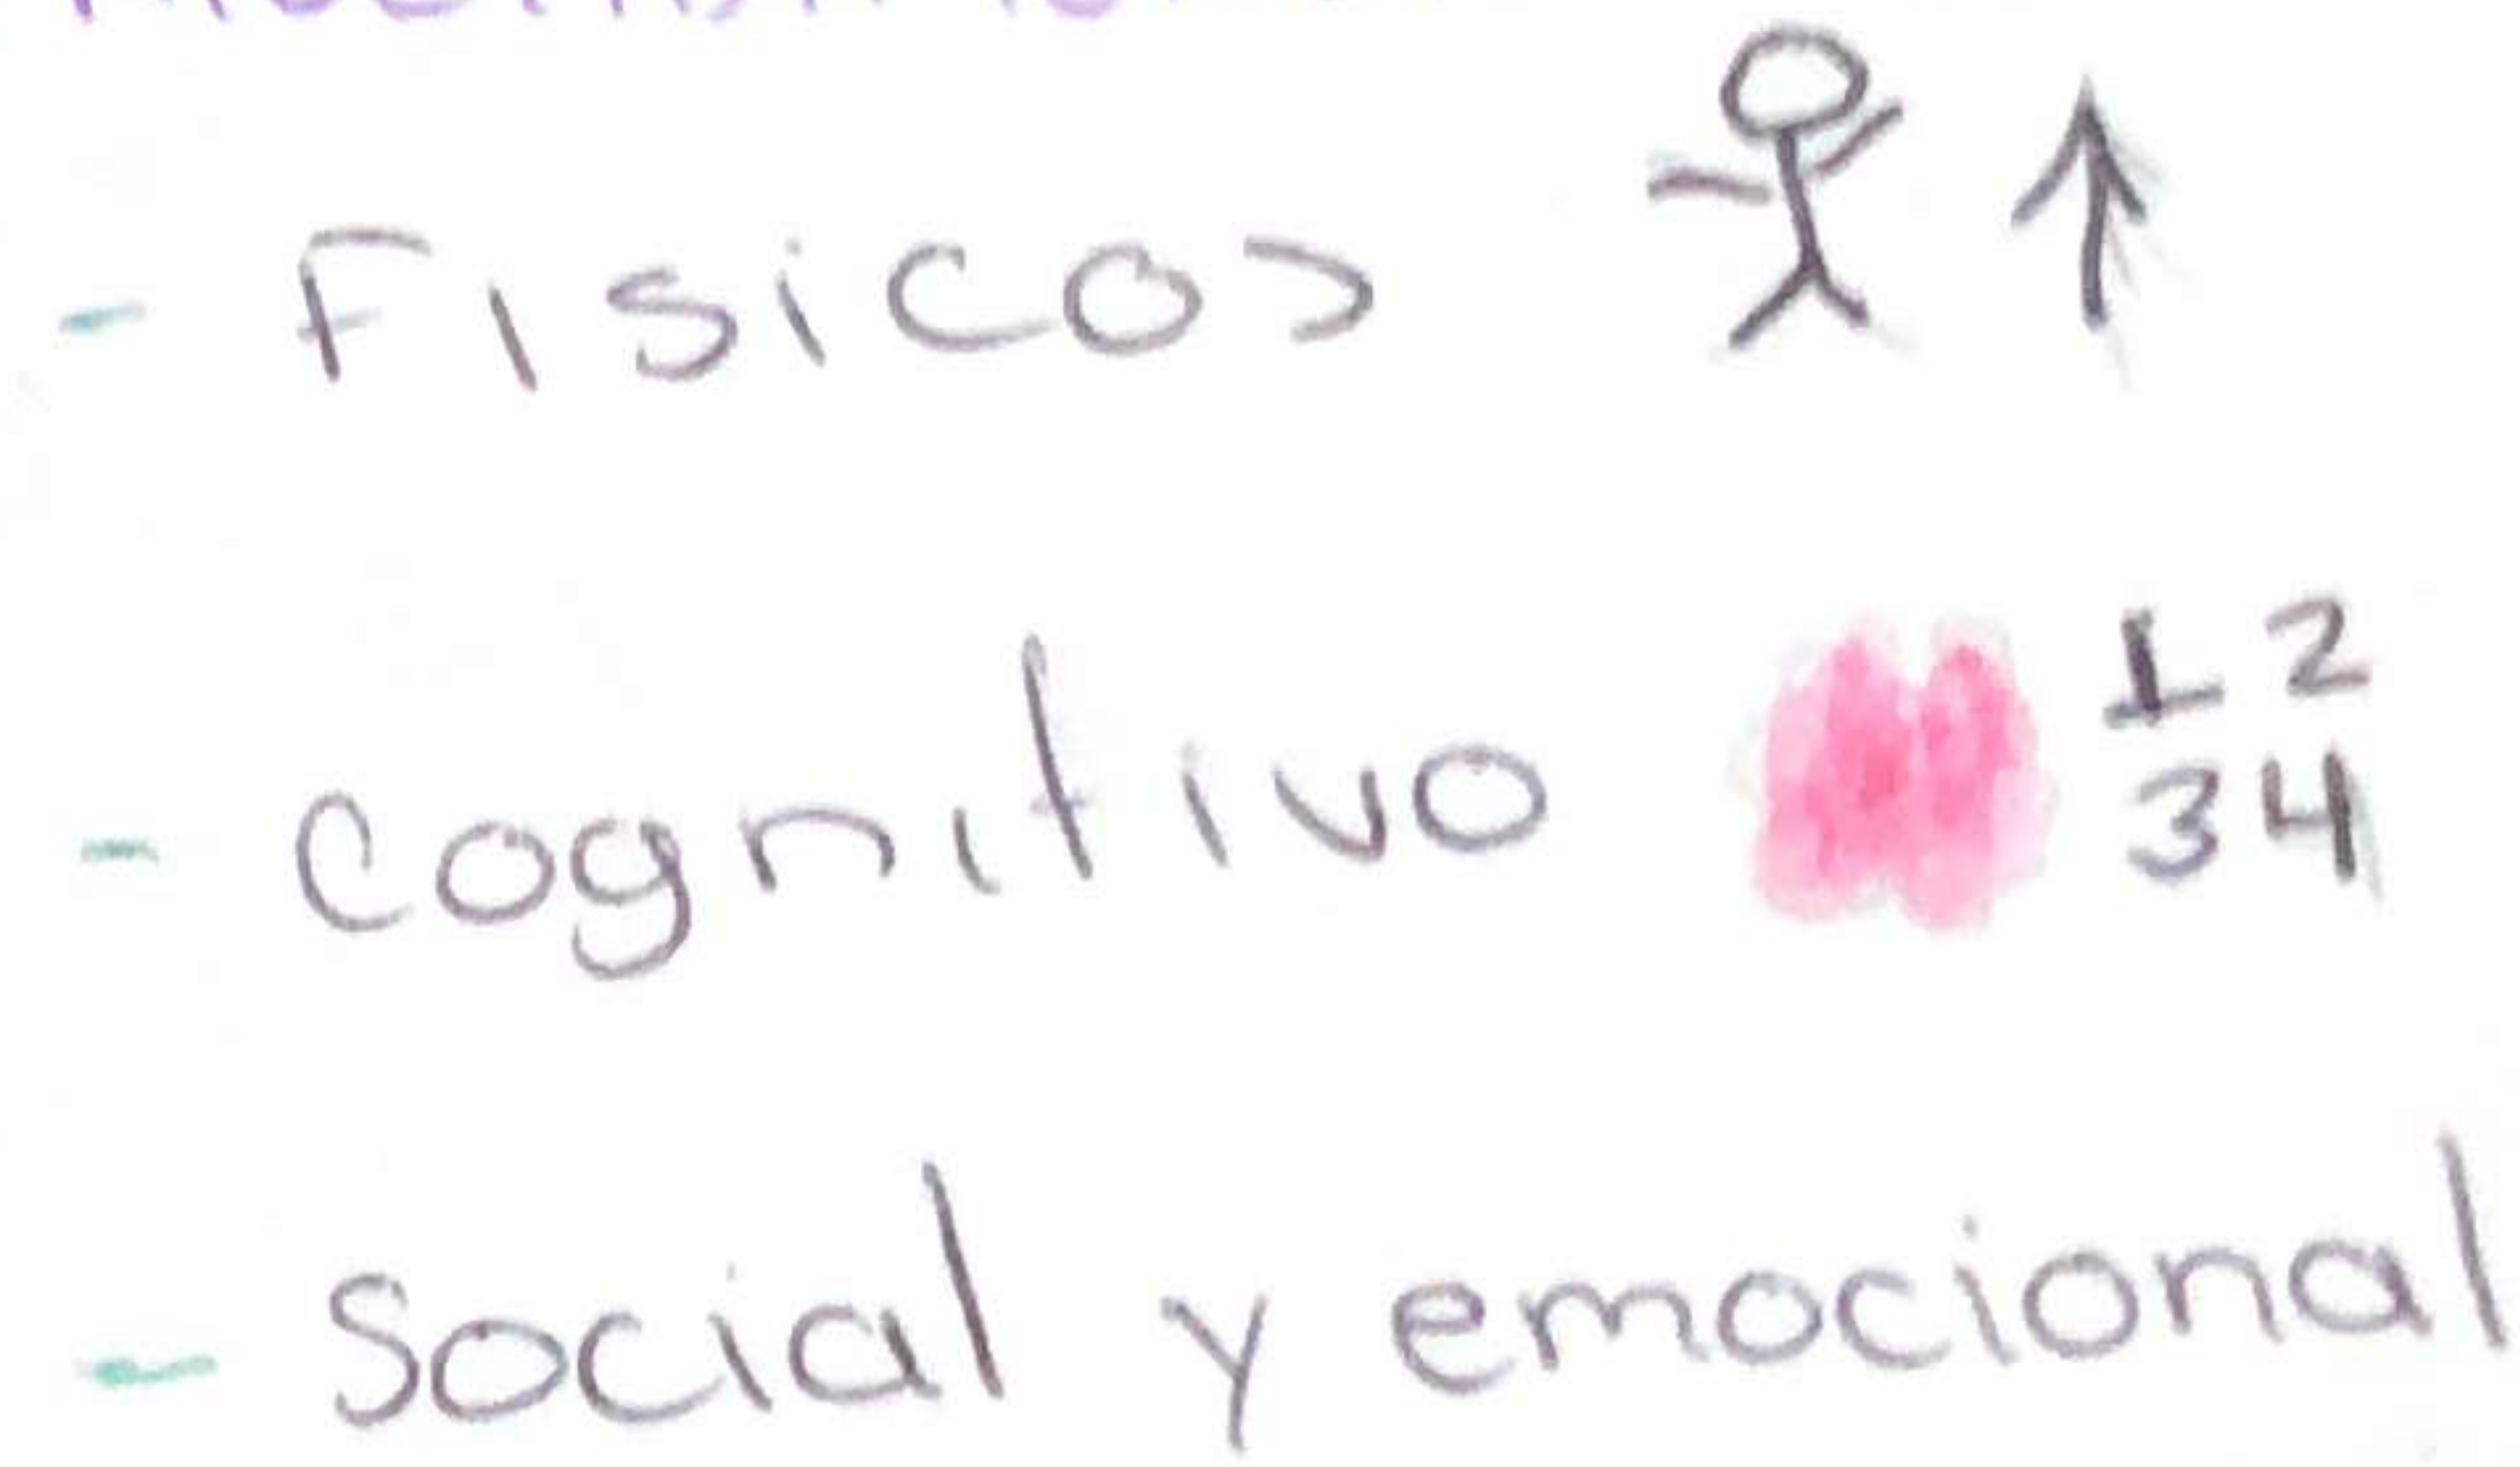 - Fisicos
- Cognitivo 1 2
3 4
- Social y emocional